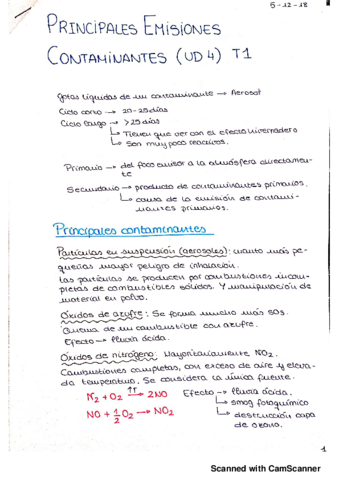 5-12-18
PRINCIPALES EMISIONES
CONTAMINANTES (UD 4) T1
Gotas líquidas de un contaminante → Aerosol
Ciclo corto → 20-25 días
Ciclo largo → >25 días
↳ Tienen que ver con el efecto invernadero
↳ Son muy poco reactivos.
Primario → del foco emisor a la atmósfera directamen-
te
Secundario → producto de contaminantes primarios.
↳ causa de la emisión de contami-
nantes primarios.
Principales contaminantes
Partículas en suspensión (aerosoles): cuanto más pe-
queñas mayor peligro de inhalación.
Las partículas se producen por combustiones incom-
pletas de combustibles sólidos. Y manipulación de
material en polvo.
Óxidos de azufre: Se forma mucho más SO2.
Quema de un combustible con azufre.
Efecto → lluvia ácida.
Óxidos de nitrógeno: Mayoritariamente NO2.
Combustiones completas, con exceso de aire y eleva-
da temperatura. Se considera la única fuente.
N2 + O2 →(↑T) 2NO Efecto → lluvia ácida.
↳ smog fotoquímico
NO + 1/2 O2 → NO2
↳ destrucción capa
de ozono.
1
Scanned with CamScanner